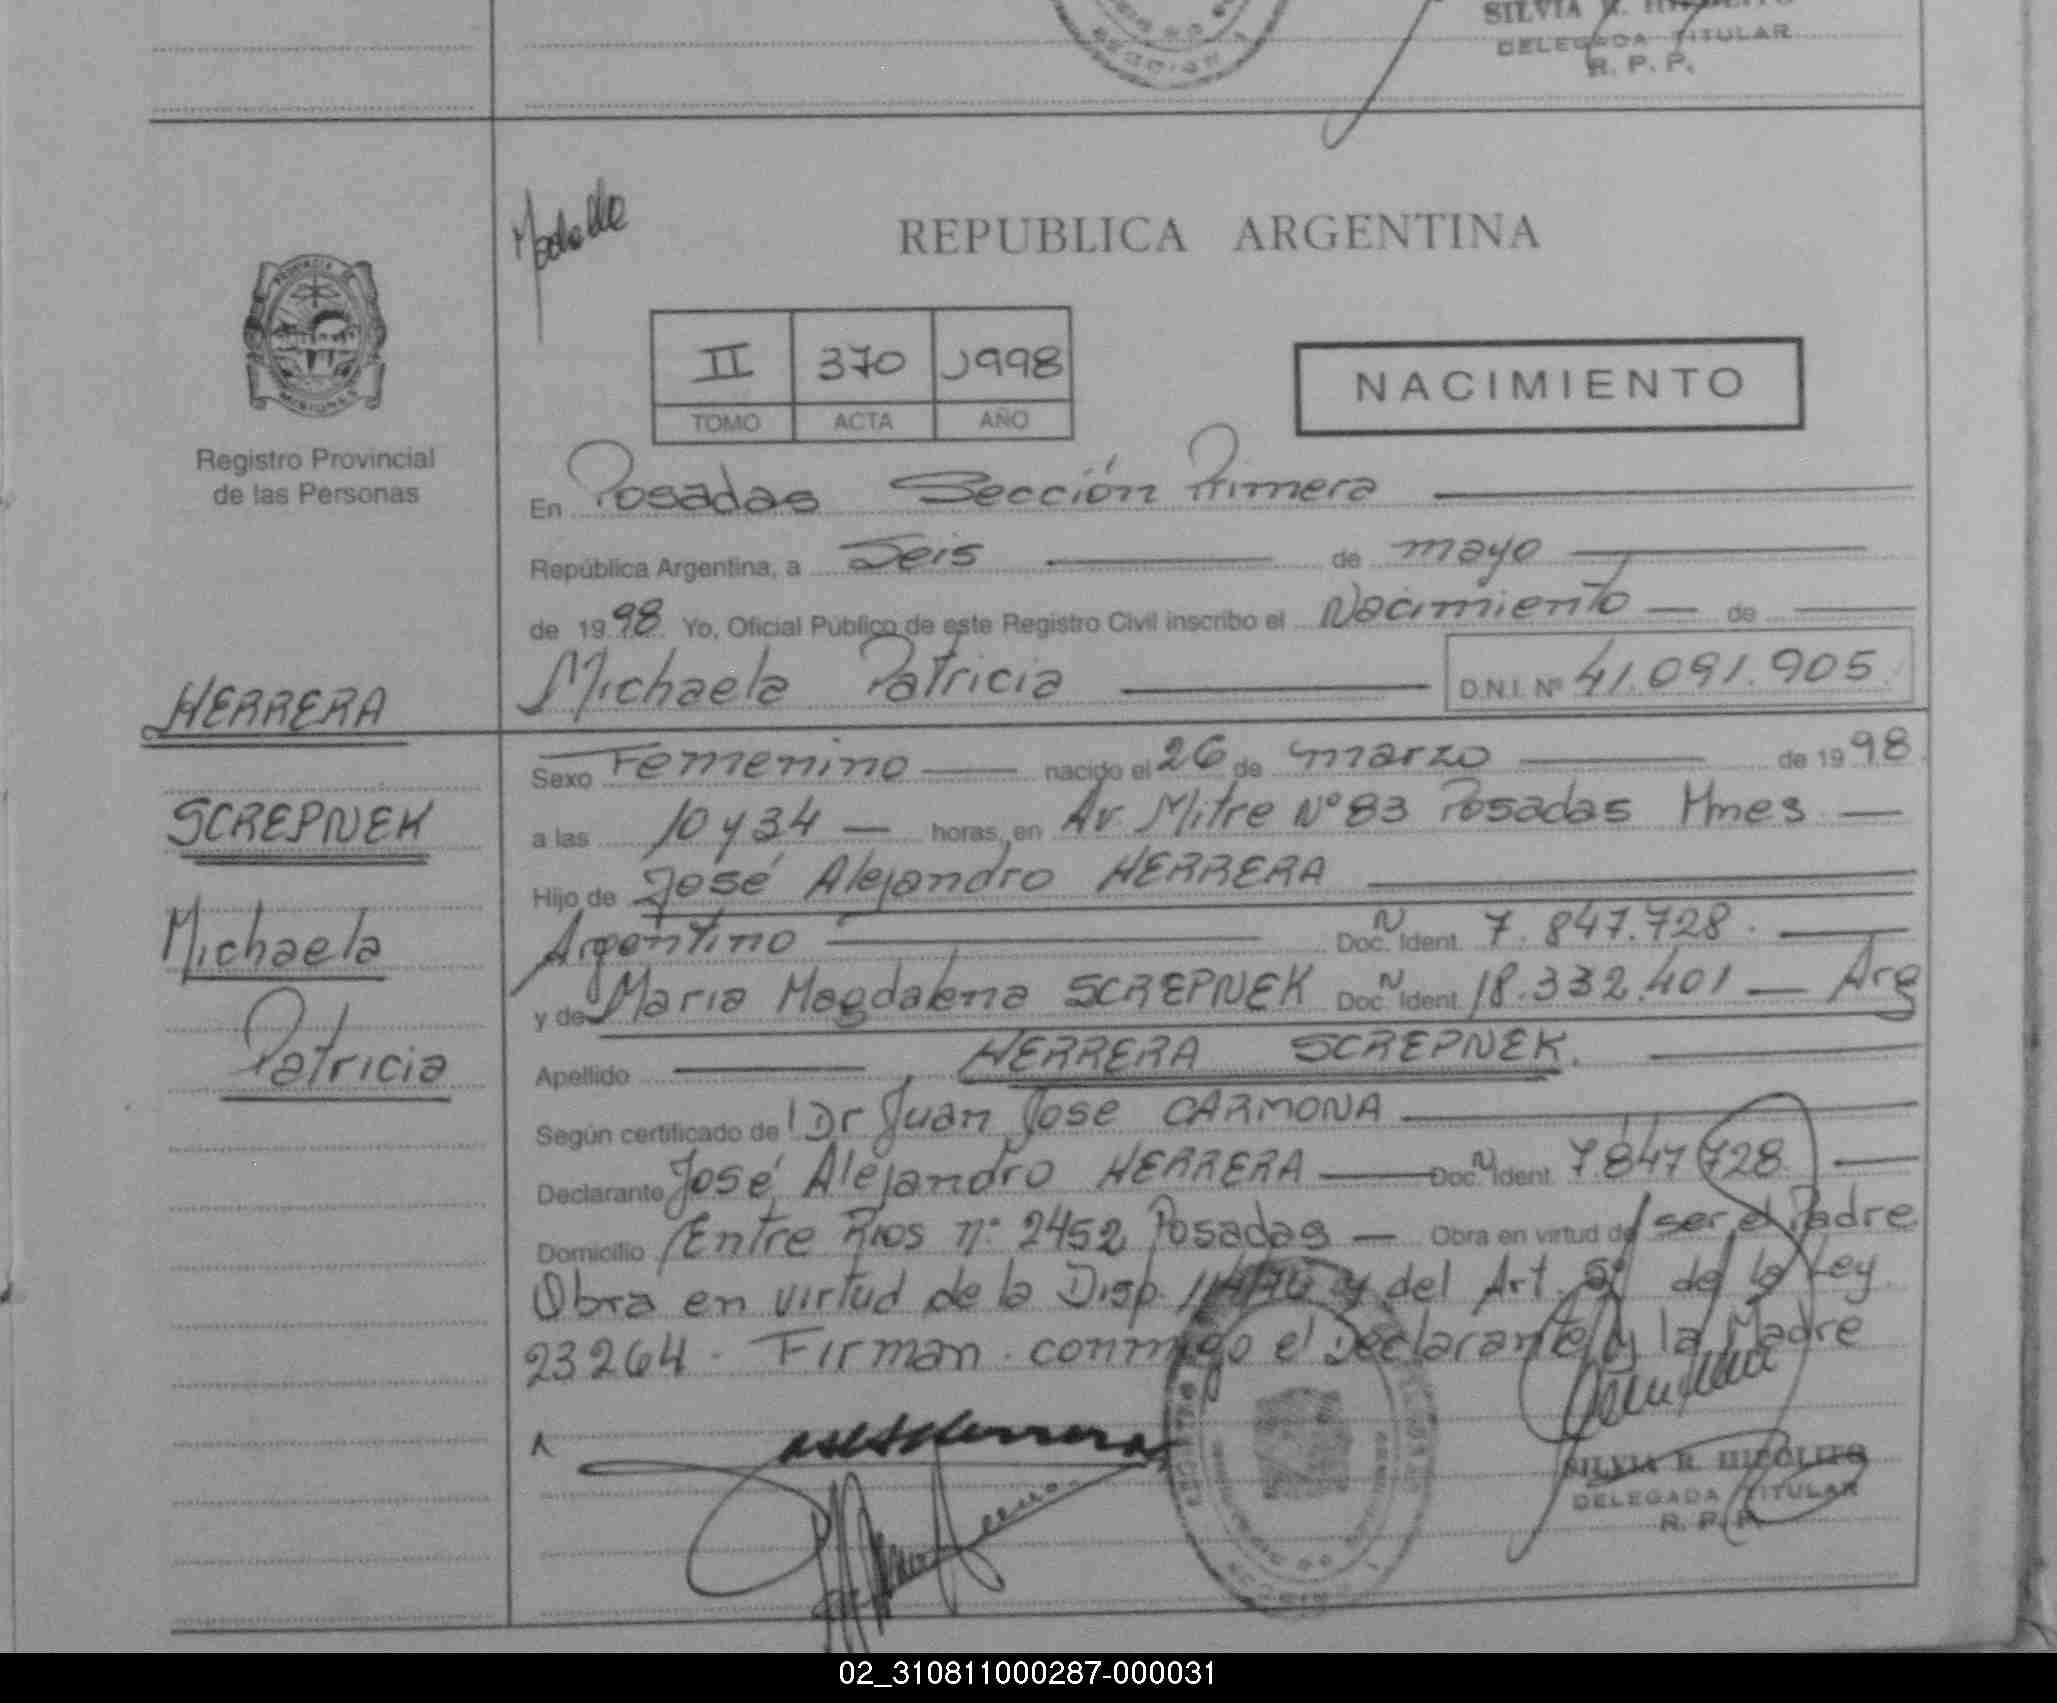 DELEGADA TITULAR
R. P. P.
REPUBLICA ARGENTINA
II 370 1998
TOMO ACTA AÑO
NACIMIENTO
MISIONES
Registro Provincial
de las Personas
En Posadas Sección Primera
República Argentina, a Seis de mayo
de 1998 Yo, Oficial Público de este Registro Civil inscribo el Nacimiento de
Michaela Patricia D.N.I. Nº 41.091.905
HERRERA
SCREPNEK
Michaela
Patricia
Sexo Femenino nacido el 26 de marzo de 1998
a las 10 y 34 horas, en Av Mitre Nº 83 Posadas Mnes
Hijo de José Alejandro HERRERA
Argentino Doc. Ident. 7.847.728.
y de Maria Magdalena SCREPNEK Doc. Ident. 18.332.401 Arg
Apellido HERRERA SCREPNEK.
Según certificado de Dr Juan José CARMONA
Declarante José Alejandro HERRERA Doc. Ident. 7.847.728.
Domicilio Entre Rios nº 2452 Posadas Obra en virtud de ser el Padre
Obra en virtud de la Disp. y del Art. 5º de la Ley
23264. Firman conmigo el Declarante y la Madre
SILVIA R. HIPOLITO
DELEGADA TITULAR
R. P. P.
02_310811000287-000031